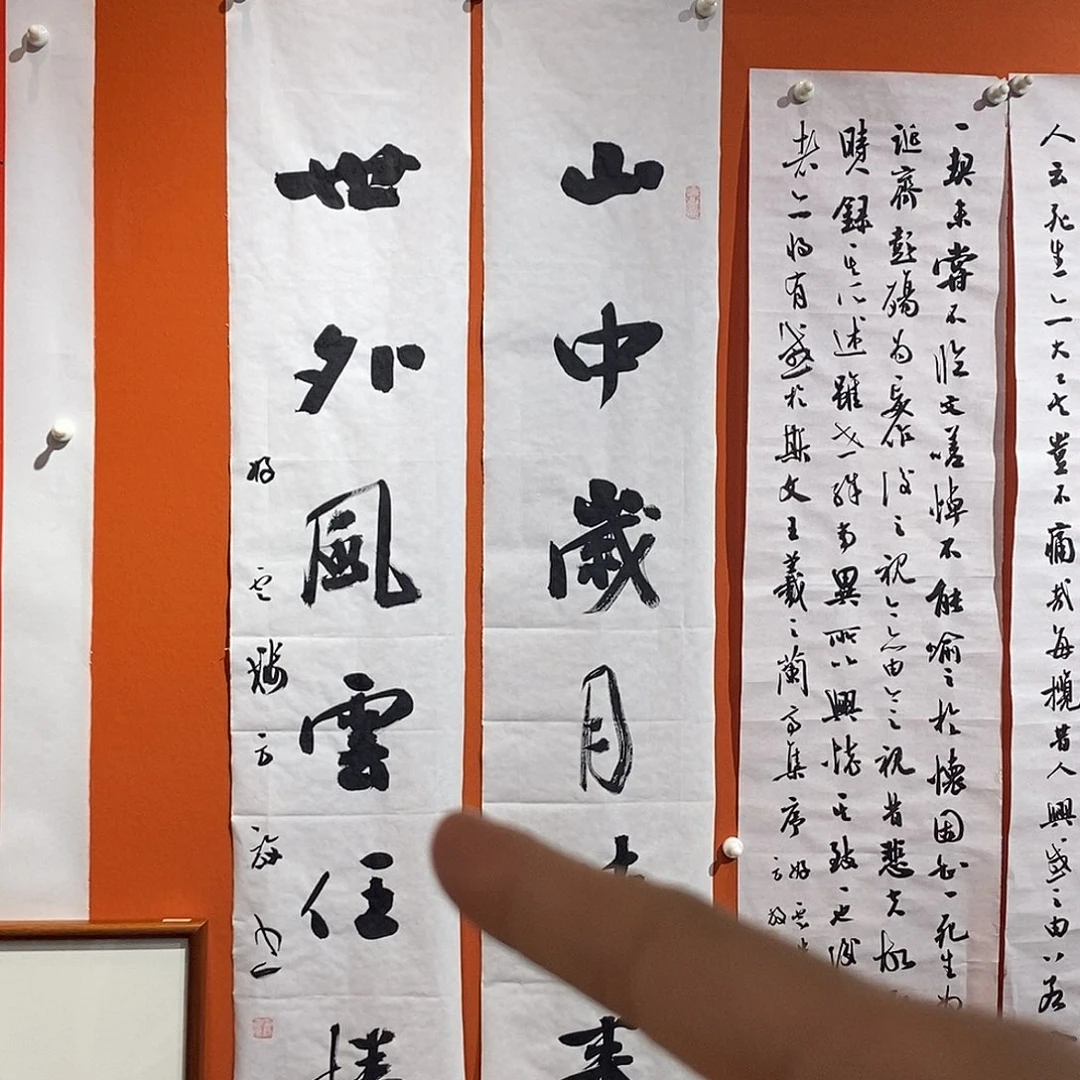 人云死生亦大矣豈不痛哉每攬昔人興感之由
一契未嘗不臨文嗟悼不能喻之於懷固知一死生為
誕齊彭殤為妄作後之視今亦由今之視昔悲夫故
時人錄其所述雖世殊事異所以興懷其致一也後
者亦將有感於斯文王羲之蘭亭集序
山中歲月
世外風雲任